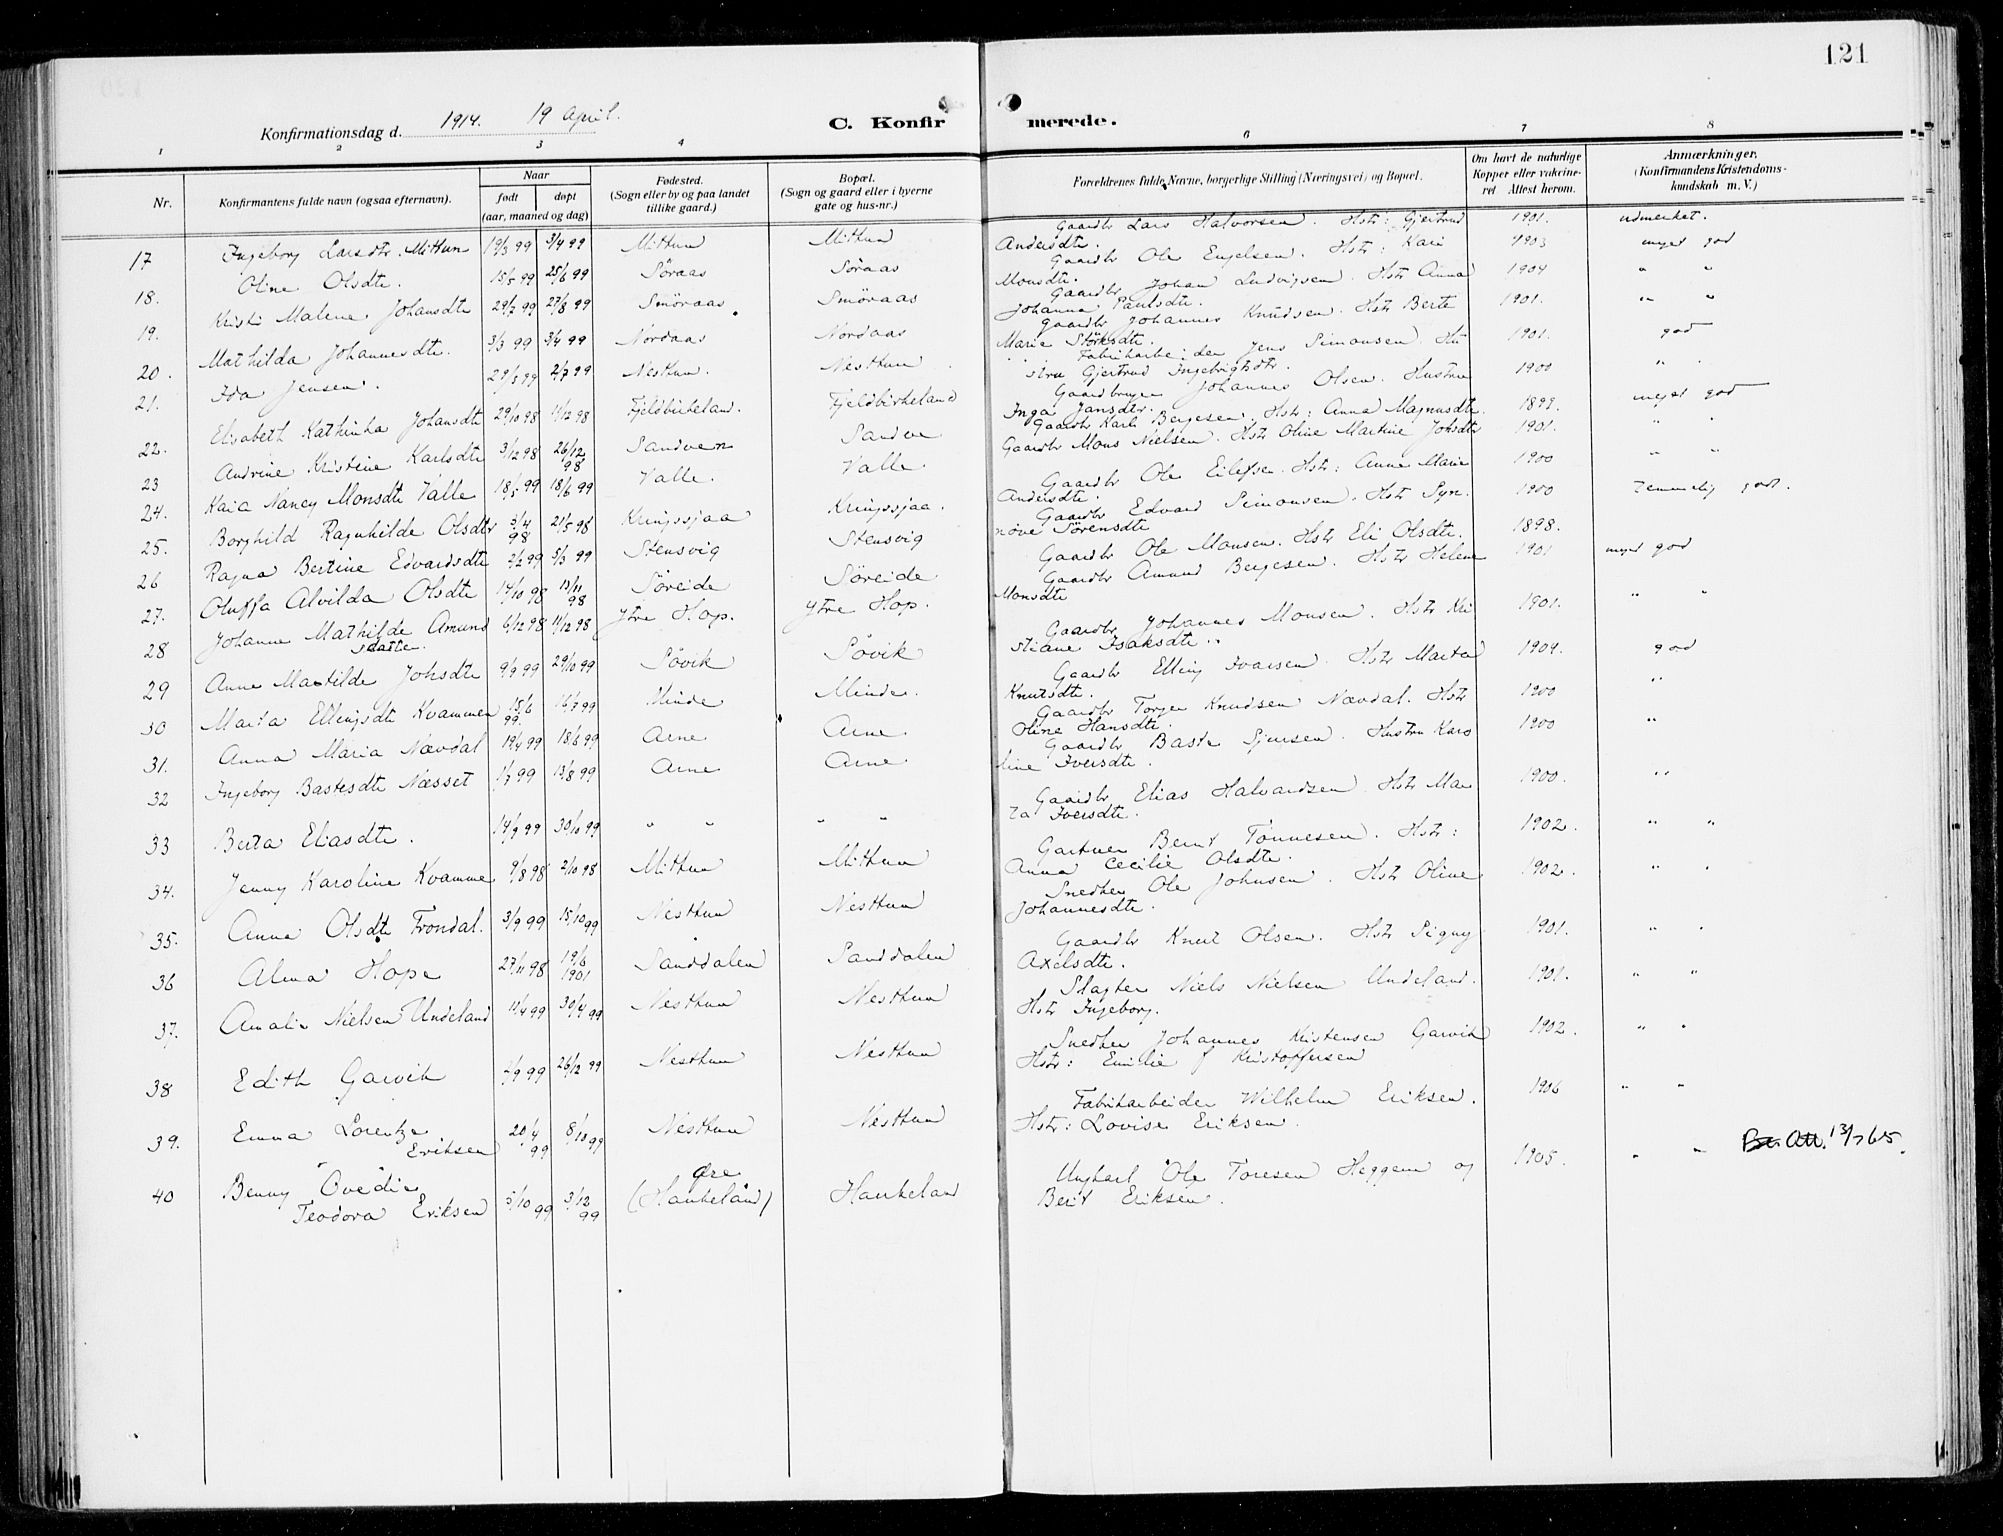 121
Konfirmationsdag d. 1914. 19 April.
C. Konfirmerede.
1 2 3 4 6 7 8
Nr.
Konfirmantens fulde navn (ogsaa efternavn).
Naar
født
døpt
(aar, maaned og dag)
Fødested.
(Sogn eller by og paa landet
tillike gaard.)
Bopæl.
(Sogn og gaard eller i byerne
gate og hus-nr.)
Forældrenes fulde Navne, borgerlige Stilling (Næringsvei) og Bopæl.
Om havt de naturlige
Kopper eller vakcine-
ret Attest herom.
Anmærkninger.
(Konfirmandens Kristendoms-
kundskab m. V.)
17 Ingeborg Larsdtr. Mittun 19/3 99 3/4 99 Mittun Mittun Gaardbr Lars Halvorsen. Hstr: Gjertrud 1901. udmerket.
Andersdtr.
18. Oline Olsdtr. 15/5 99 25/6 99 Söraas Söraas Gaardbr Ole Engelsen. Hstr: Kari 1903 meget god
Monsdtr.
19. Kristi Malene Johansdtr 29/7 99 27/8 99 Smöraas Smöraas Gaardbr Johan Ludvigsen. Hstr Anna 1904 " "
Johanna Paulsdtr.
20. Mathilda Johannesdtr. 3/3 99 3/4 99 Nordaas Nordaas Gaardbr Johannes Knudsen. Hstr Berte 1901. " "
Marie Störksdtr.
21. Ida Jensen. 29/5 99 2/7 99 Nesttun. Nesttun Fabrikarbeider Jens Simonsen. Hu 1901. god
stru Gjertrud Ingebrigtsdtr.
22. Elisabeth Kathinka Johansdtr 29/10 98 11/12 98 Fjeldbirkeland. Fjeldbirkeland Gaardbruger Johannes Olsen. Hustru 1900 " "
Inga Jansdtr.
23 Andrine Kristine Karlsdtr 3/12 98 26/12 98 Sandven Sandve Gaardbr Karl Bergesen. Hstr: Anna Magnusdtr. 1899. meget god
24. Kaia Nancy Monsdtr Valle 18/5 99 18/6 99 Valle. Valle. Gaardbr Mons Nielsen. Hstr Oline Martine Johsdtr 1901. " "
25. Borghild Ragnhilde Olsdtr 3/4 98 21/5 98 Kringssjaa Kringssjaa. Gaardbr Ole Eilefsen. Hstr: Anne Marie 1900 " "
Andersdtr.
26 Ragna Bertine Edvardsdtr 2/2 99 5/3 99 Stensvig Stensvig Gaardbr Edvard Simonsen. Hstr Syn- 1900 temmelig godt.
növe Sörensdtr
27. Oluffa Alvilda Olsdtr 14/10 98 13/11 98 Söreide Söreide Gaardbr Ole Monsen. Hstr Eli Olsdtr. 1898.
28 Johanne Mathilde Amunds 6/12 98 11/12 98 Ytre Hop. Ytre Hop. Gaardbr Amund Bergesen. Hstr Helene 1901 meget god
datter. Monsdtr
29 Anne Matilde Johsdtr 9/9 99 29/10 99 Sövik Sövik Gaardbr Johannes Monsen. Hstr Kri 1901. " "
stiane Isaksdtr.
30 Marta Ellingsdtr Kvammen 15/6 99. 16/7 99 Minde Minde. Gaardbr Elling Ivarsen. Hstr Marta 1904. god
Knutsdtr.
31. Anna Maria Nævdal 19/4 99 18/6 99 Arne Arne. Gaardbr Torger Knudsen Nævdal. Hstr 1900 "
Oline Hansdtr.
32 Ingeborg Bastesdtr Næsset 1/7 99 13/8 99 Arne Arne Gaardbr Baste Sjursen. Hustru Karo 1900 "
line Iversdtr.
33 Berta Eliasdtr. 14/9 99 30/10 99 " " " " Gaardbr Elias Halvardsen. Hstr Mar 1900. "
ta Iversdtr.
34. Jenny Karoline Kvamme 9/8 98 2/10 98 Mittun Mittun Gartner Bernt Tönnesen. Hstr: 1902. " "
Anna Cecilie Olsdtr.
35. Anna Olsdtr Tröndal. 3/9 99 15/10 99 Nesttun Nesttun Snedker Ole Johnsen. Hstr Oline 1902. " "
Johannesdtr.
36 Alma Hope 27/11 98 19/6 1901 Sanddalen Sanddalen Gaardbr Knut Olsen. Hstr Signy 1901. " "
Axelsdtr.
37. Amalie Nielsen Undeland 11/4 99 30/4 99 Nesttun Nesttun Slagter Niels Nielsen Undeland. 1901. " "
Hstr Ingeborg.
38 Edith Garvik 2/9 99 26/12 99 Nesttun Nesttun Snedker Johannes Kristensen Garvik 1902. " "
Hstr: Emilie f Kristoffersen
39. Emma Lorentze 20/4 99 8/10 99 Nesttun Nesttun Fabrikarbeider Wilhelm Eriksen. 1906 " "
Eriksen Hstr: Lovise Eriksen.
40 Benny Ovedie 5/10 99 3/12 99 Øre Haukeland Ungkarl Ole Toresen Heggem og 1905. " " Att. 13/7 65.
Teodora Eriksen (Haukeland) Berit Eriksen.